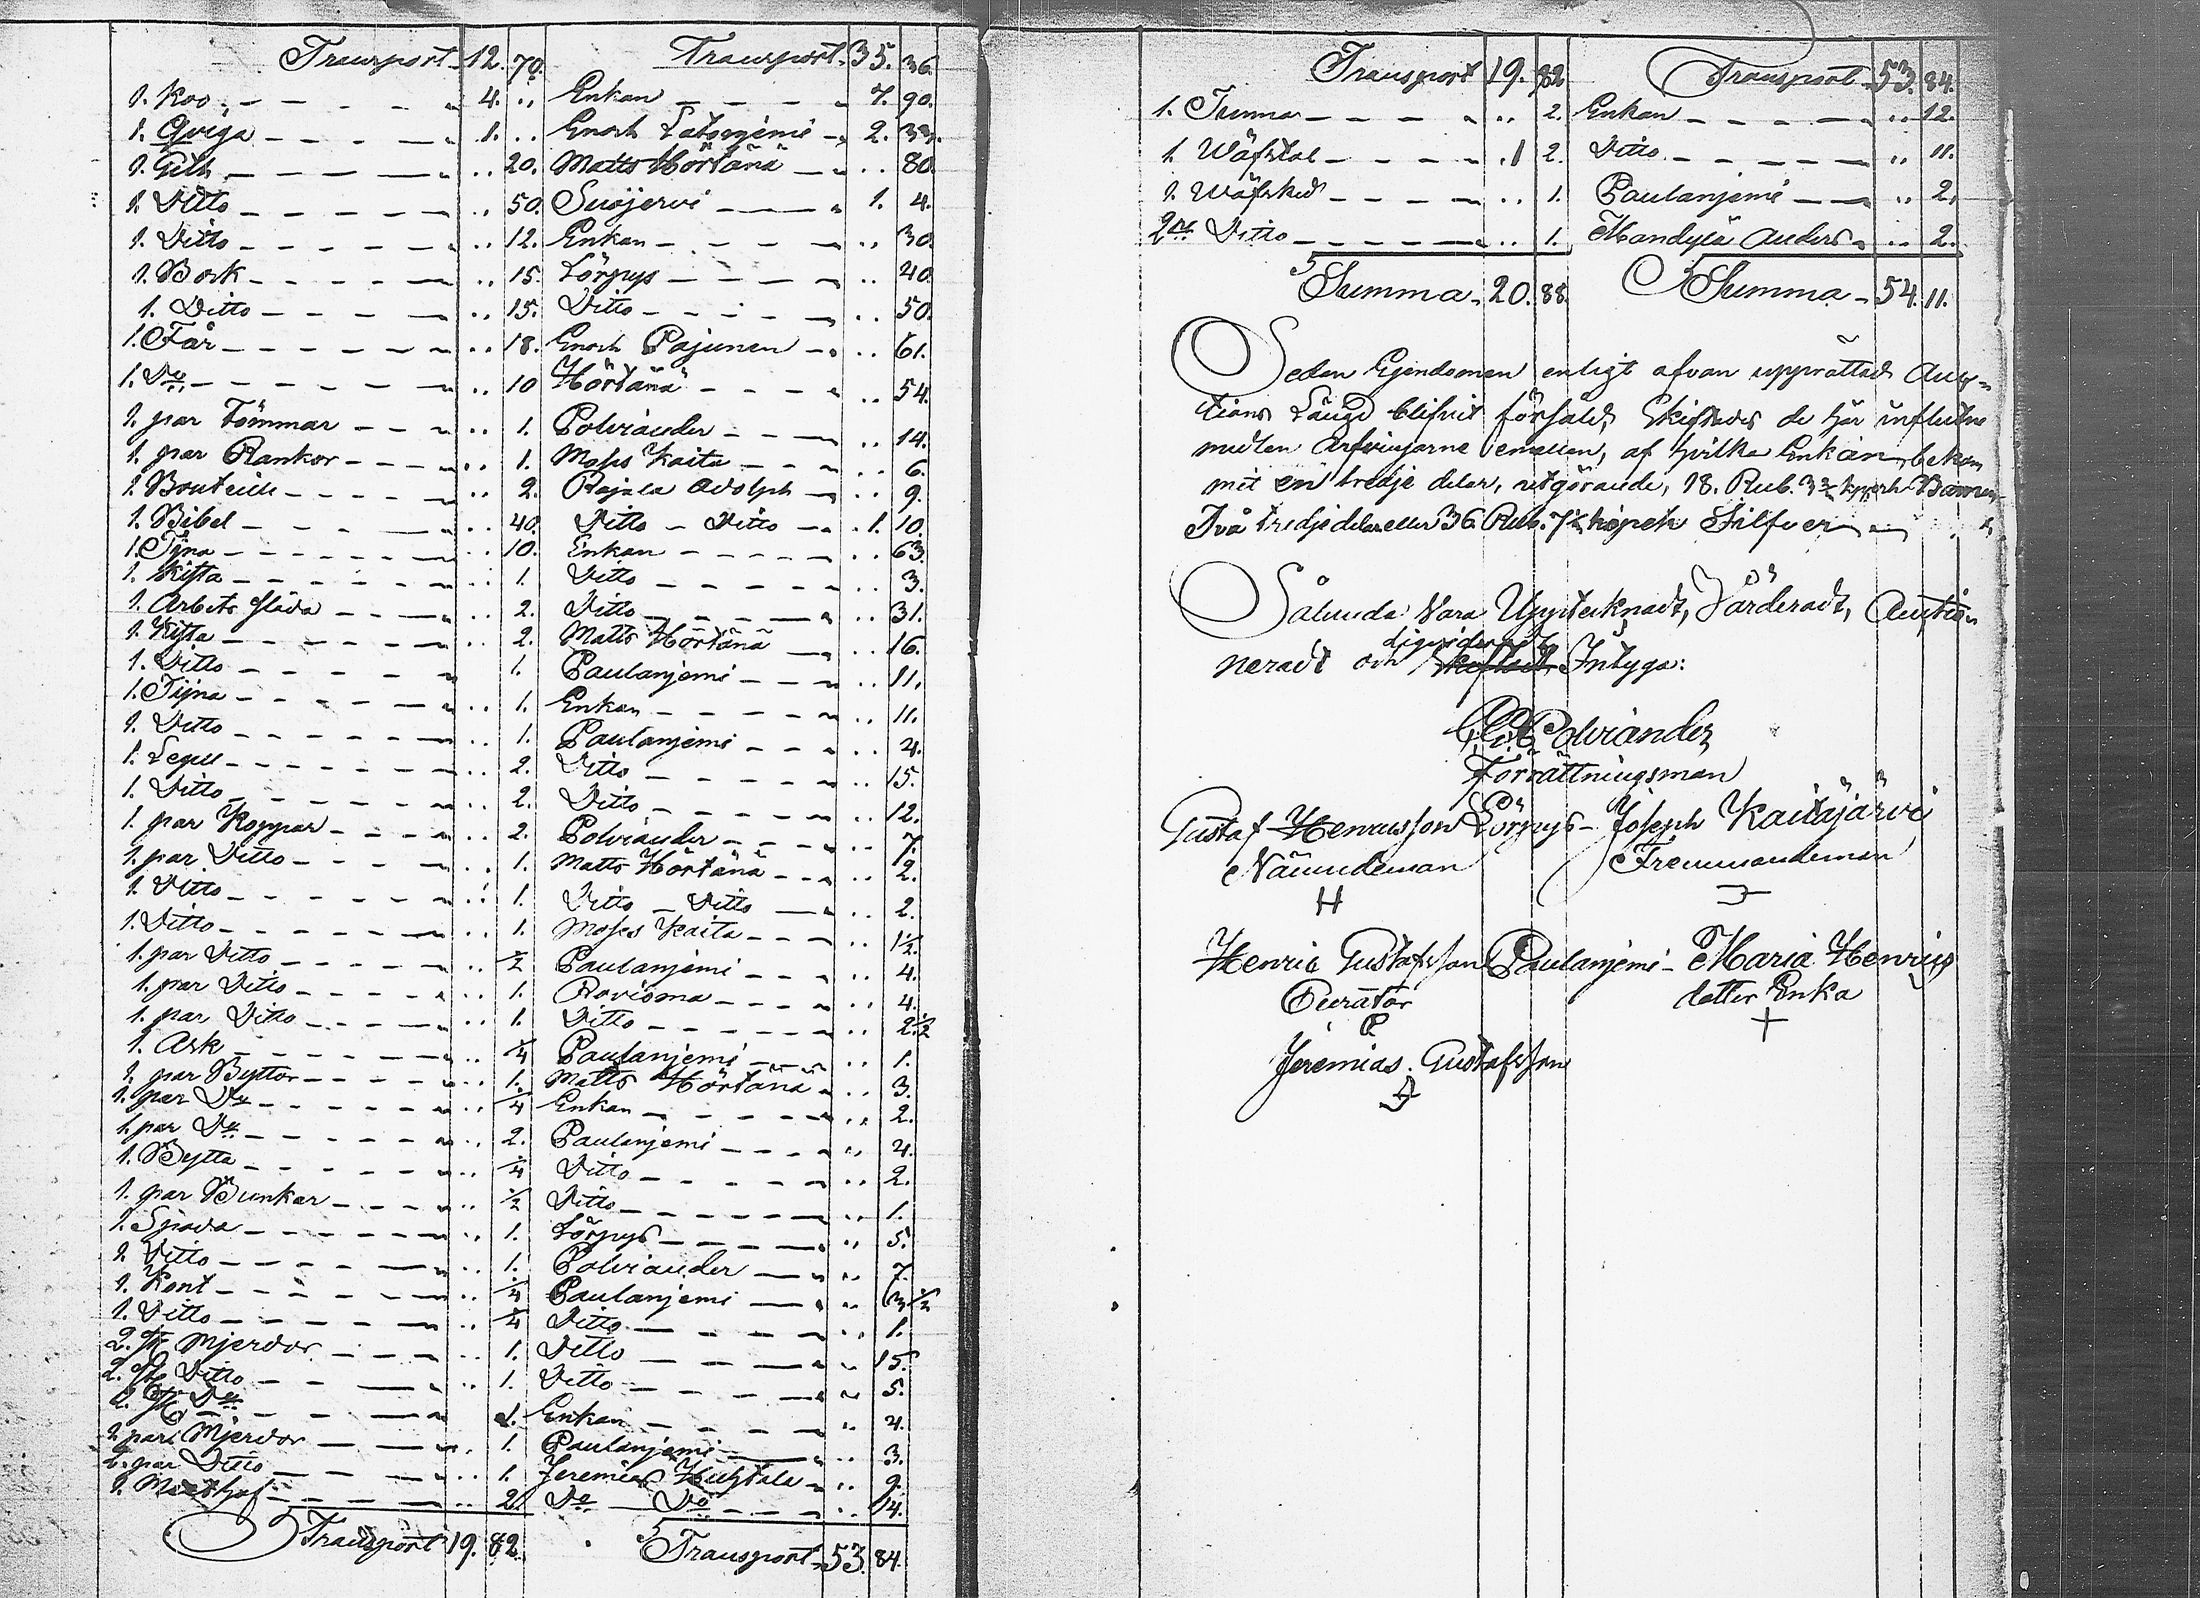 Transport 12. 70. Transport 35. 36.
1. Koo 4. .. Enkan 7. 90.
1. Qviga 1. .. Enoch 2.
1. Geth .. 20. Matts Hörtänä .. 80.
1. Ditto .. 50. Suojervi 1. 4.
1. Ditto .. 12. Enkan .. 30.
1. Bock .. 15. Lörpys .. 40.
1. Ditto .. 15. Ditto .. 50.
1. Får .. 18. Enoch Pajunen .. 61.
1. Do .. 10 Hörtänä .. 54.
1. par Tömmar .. 1. Polviander .. 14.
1. par Rankor .. 1. Moses Kaita .. 6.
1. .. 2. Rajala Adolph .. 9.
1. Bibel .. 40. Ditto Ditto 1. 10.
1. Tijna .. 10. Enkan .. 63.
1. Kista .. 1. Ditto .. 3.
1. Arbets släda .. 2. Ditto .. 31.
1. Kista .. 2. Matts Hörtänä .. 16.
1. Ditto 1. Paulanjemi .. 11.
1. Tijna .. 1. Enkan .. 11.
1. Ditto .. 1. Paulanjemi .. 4.
1. Legel .. 2. Ditto .. 15.
1. Ditto .. 2. Ditto .. 12.
1. par Koppar .. 2. Polviander .. 7.
1. par Ditto .. 1. Matts Hörtänä .. 2.
1. Ditto .. 1. Ditto Ditto .. 2.
1. Ditto .. 1. Moses Kaita .. 1½
1. par Ditto .. ½ Paulanjemi .. 4.
1. par Ditto .. 1. Rovioma .. 4.
1. par Ditto .. 1. Ditto .. 2½
1. Ask .. ¼ Paulanjemi .. 1.
1. par Byttor .. 1. Matts Hörtänä .. 3.
1. par Do .. ¼ Enkan .. 2.
1. par Do .. 2. Paulanjemi .. 4.
1. Bytta .. ¼ Ditto .. 2.
1. par Bunkar .. ½ Ditto .. 1.
1. Spada .. 1. Lörpys .. 5.
1. Ditto .. 1. Polviander .. 7.
1. Kont .. ¼ Paulanjemi .. 3½
1. Ditto .. ¼ Ditto .. 1.
2. st Mjerdor .. 1. Ditto .. 15.
2. st Ditto .. 1. Ditto .. 5.
2. st Do 1. Enkan .. 4.
1 par Mjerdor .. 1. Paulanjemi .. 3.
2. par Ditto .. 1. Jeremias Huhtala .. 9.
1. .. 2. Do Do .. 14.
Transport 19. 82. Transport 53. 84.
Transport 19. 82 Transport 53. 84.
1. Tunna .. 2. Enkan .. 12.
1. Wäfstol .. 2. Ditto .. 11.
1. Wäfsked .. 1. Paulanjemi .. 2.
2st Ditto .. 1. Mandylä Anders .. 2.
Summa 20. 88. Summa 54. 11.
Sedan Egendomen enligt ofvan upprättad Auc-
tions Längd blifvit försåld, skiftades de här influtne
medlen Arfvingarne emellan, af hvilka Enkan bekom
mit en tredje delar, utgörande, 18. Rub. 3⅔ kopek Barnen
Två tredjedelar eller 36 Rub. 7⅓ kopek Silfver
Sålunda Vara Uppteknadt, Värderadt, Auktio
neradt och skiftadt liqviderat Intyga:
Polviander
Förrättningsman
Gustaf Henricsson Lörpys Joseph Kaitajärvi
Nämndeman Fremmandeman
H
Henric Gustafsson Paulanjemi Maria Henrics
Curator dotter Enka
P +
Jeremias Gustafsson